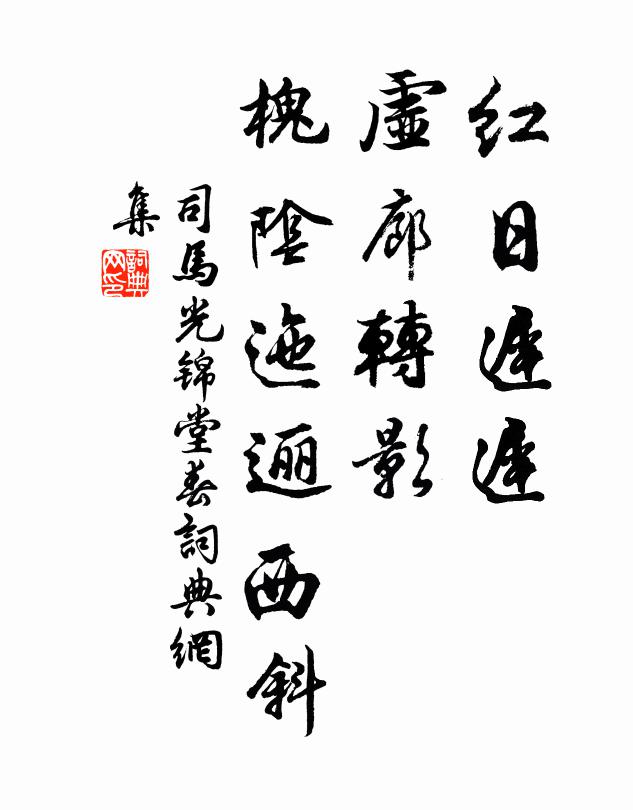 紅日遲遲
虛廊轉影
槐陰迤逦西斜
司馬光錦堂春詞典網
集
詞典網印